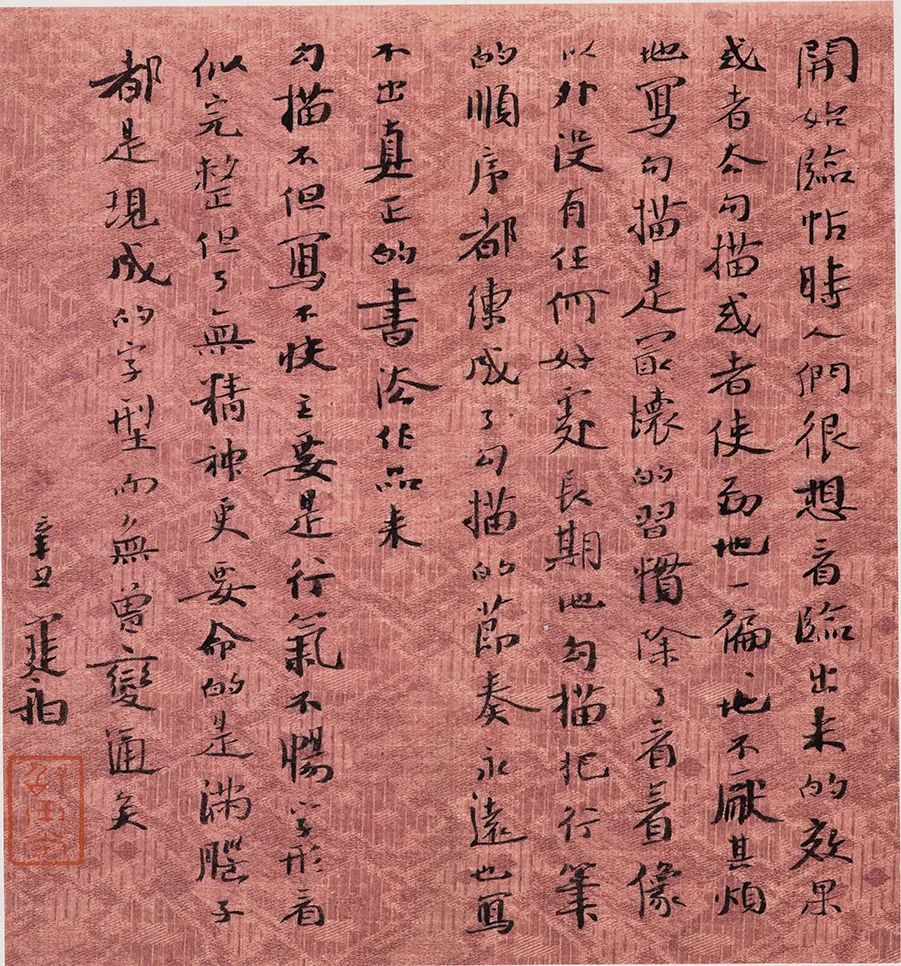 開始臨帖時人們很想看臨出来的效果
或者去勾描或者使勁地一遍一遍地不厭其煩
地寫勾描是最壞的習慣除了看着像
以外没有任何好處長期地勾描把行筆
的順序都練成了勾描的節奏永遠也寫
不出真正的書法作品来
勾描不但寫不快主要是行氣不暢字形看
似完整但了無精神更要命的是滿腦子
都是現成的字型而無曾變通矣
辛丑